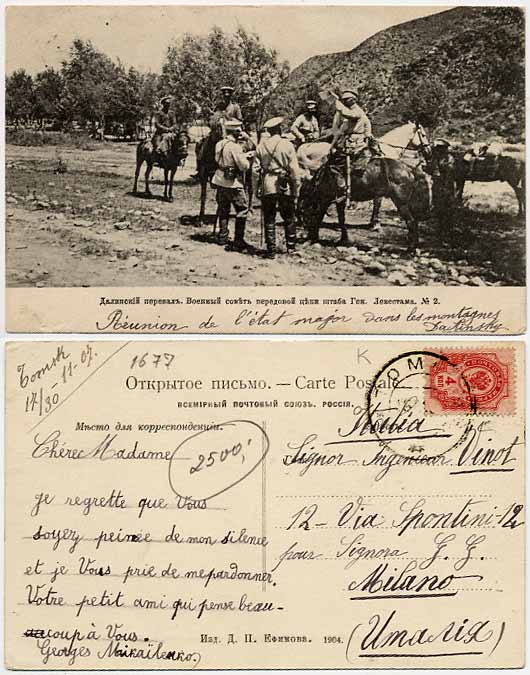 Далинскій перевалъ. Военный совѣтъ передовой цѣпи штаба Ген. Левестама. № 2.
Réunion de l'état major dans les montagnes
Dalinsky
Tomsk
17/30 11-07.
1677
K
Открытое письмо. — Carte Postale
ВСЕМІРНЫЙ ПОЧТОВЫЙ СОЮЗЪ. РОССІЯ.
Мѣсто для корреспонденціи.
2500,-
ТОМ
4
Chére Madame
je regrette que Vous
soyez peinée de mon silence
et je Vous prie de me pardonner.
Votre petit ami qui pense beau-
coup à Vous.
Georges Maikaïlenko.)
Italia
Signor Ingenieur Vinot
12 - Via Spontini - 12
pour Signora G. G.
Milano
(Италія)
Изд. Д. П. Ефимова. 1904.